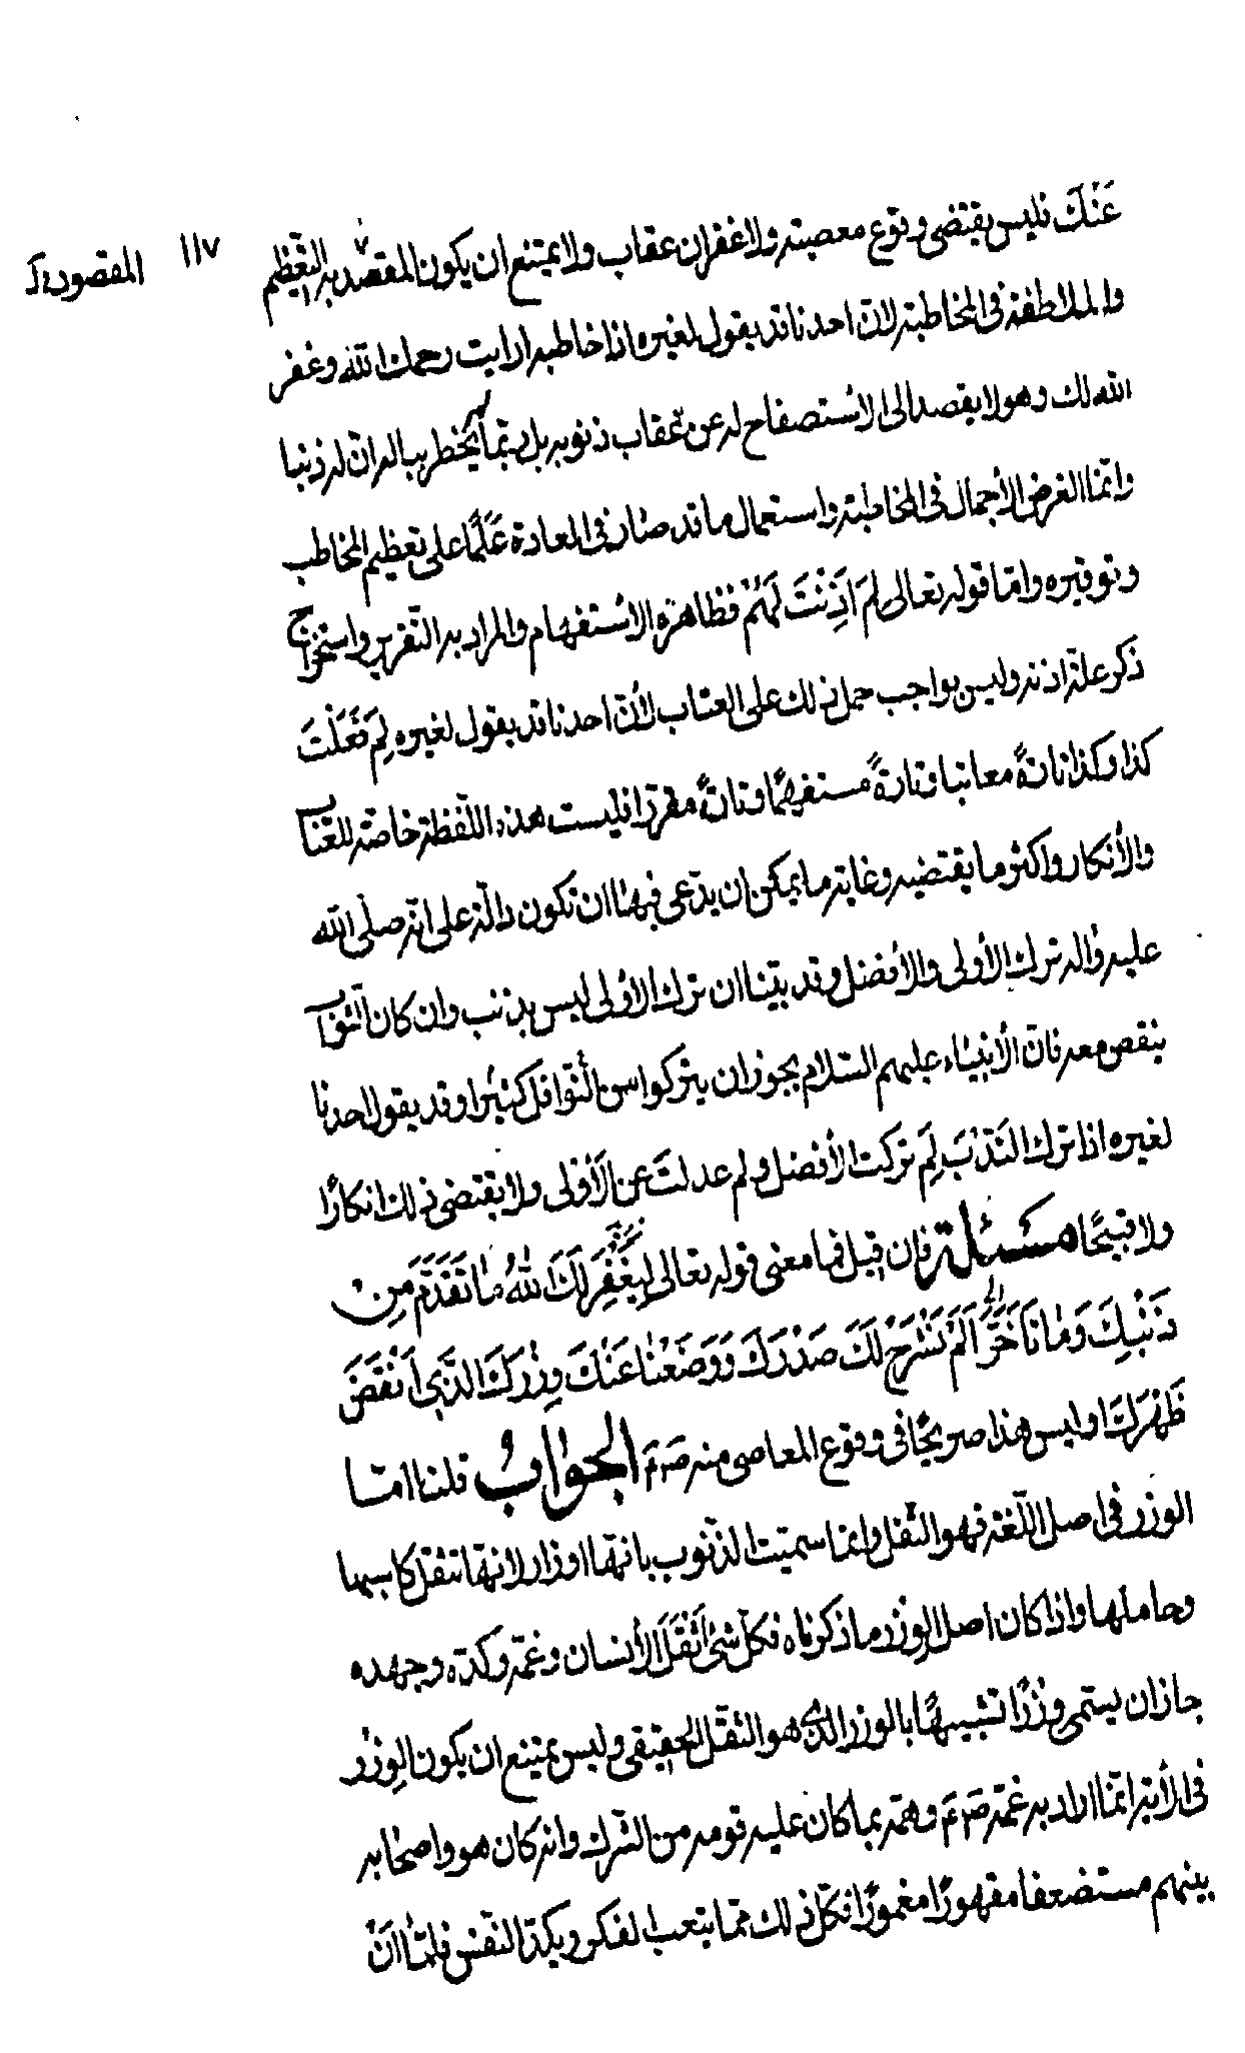 عَنْكَ فليس يقتضى وقوع معصيته ولا غفران عقاب ولا يمتنع ان يكون المقصد به التعظيم
١١٧
المقصود
والملاطفة فى المخاطبة لان احدنا قد يقول لغيره اذا خاطبه ارايت رحمك الله وغفر
الله لك وهو لا يقصد الى الاستصفاح له عن عقاب ذنوبه بل ربّما لم يخطر بباله انّ له ذنبا
وانّما الغرض الأجمال فى المخاطبة واستعمال ما قد صار فى العادة عَلَمًا على تعظيم المخاطب
وتوقيره وامّا قوله تعالى لِمَ اَذِنْتَ لَهُمْ فظاهره الاستفهام والمراد به التقرير واستخراج
ذكر علة اذنه وليس بواجب حمل ذلك على العتاب لأنّ احدنا قد يقول لغيره لِمَ فَعَلْتَ
كذا وكذا تارةً معاتبا وتارةً مستفهمًا وتارةً مقررا فليست هذه اللّفظة خاصّة للعتاب
والأنكار واكثر ما يقتضيه وغاية ما يمكن ان يدّعى فيها ان تكون دالّة على انّه صلّى الله
عليه وآله ترك الأولى والأفضل وقد بيّنا ان ترك الأولى ليس بذنب وان كان الثواب
ينقص معه فانّ الأنبياء عليهم السّلام يجوز ان يتركوا من النّوافل كثيرا وقد يقول احدنا
لغيره اذا ترك النّدبَ لِمَ تركت الأفضل ولم عدلتَ عن الأَوْلى ولا يقتضى ذلك انكارًا
ولا قبيحًا مسئلة فان قيل فما معنى قوله تعالى لِيَغْفِرَ لَكَ اللهُ مَا تَقَدَّمَ مِنْ
ذَنْبِكَ وَمَا تَاَخَّرَ اَلَمْ نَشْرَحْ لَكَ صَدْرَكَ وَوَضَعْنَا عَنْكَ وِزْرَكَ الَّذِى اَنْقَضَ
ظَهْرَكَ اوليس هذا صريحًا فى وقوع المعاصى منه ص ع الجوابُ قلنا امّا
الوزر فى اصل اللّغة فهو الثّقل وانما سميت الذّنوب بانّها اوزار لانّها تثقل كاسبها
وحاملها واذا كان اصل الوزر ما ذكرناه فكلّ شئ اَثْقَلَ الأنسان وغمّه وكدّه وجهده
جاز ان يسمّى وزرًا تشبيهًا بالوزر الذى هو الثّقل الحقيقى وليس يمتنع ان يكون الوِزْر
فى الأية انّما اراد به غمّه ص ع وهمّه بما كان عليه قومه من الشرك وانه كان هو واصحابه
بينهم مستضعفا مقهورًا مغمورًا فكلّ ذلك ممّا يتعب الفكر ويكدّ النّفس فلمّا انْ